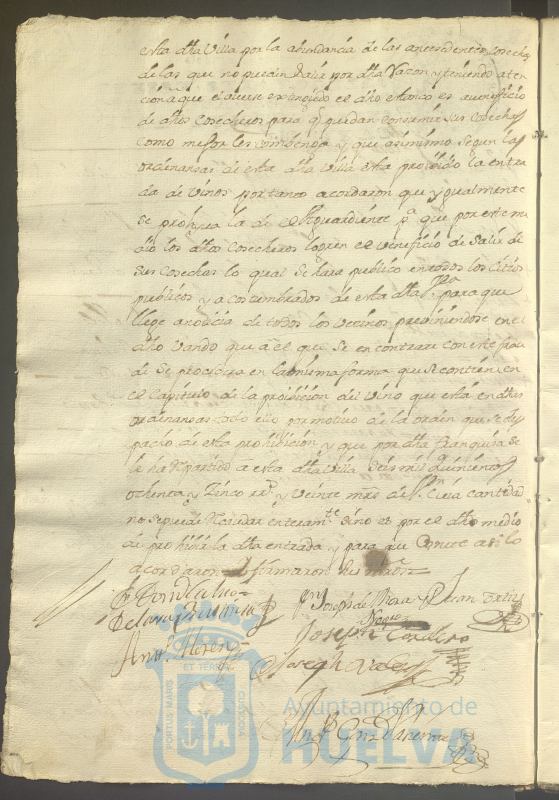 esta dha Villa por la abundancia de las antecedentes Cosechas
de las que no pueden salir por dha razon, y teniendo aten
cion a que el averse extinguido el año es en veneficio
de dhos Cosecheros para q puedan consumir sus Cosechas
como mejor les combenga y que asimismo segun las
ordenansas de esta dha Villa esta proibido la entra
da de vinos por tanto acordaron que ygualmente
se prohiva la de el Aguardiente pa que por este me
dio los dhos Cosecheros logren el veneficio de salir de
sus Cosechas lo qual se hara publico en todos los Citios
publicos y acostumbrados de esta dha Va para que
llege a noticia de todos los vecinos previniendose en el
dho vando que a el que se encontrare con este frau
de se procedera en la misma forma que se contiene en
el Capitulo de la proivicion del vino que esta en dhas
ordenansas todo ello por motivo de la orden que se des
pachó de esta prohibision, y que por dha franquisa se
le ha Repartido a esta dha Villa Seis mil quinientos
ochenta y Zinco rs y veinte mrs de vn Cuia cantidad
no se puede Recaudar enteramte sino es por el dho medio
de prohivir la dha entrada, y para que Conste asi lo
acordaron y firmaron sus mrds
Joseph de Mora y Juan Ortiz
Negro
Joseph Cordero
Anto Moreno
Joseph
PORTUS MARIS
ET TERRÆ
CUSTODIA
Ayuntamiento de
HUELVA